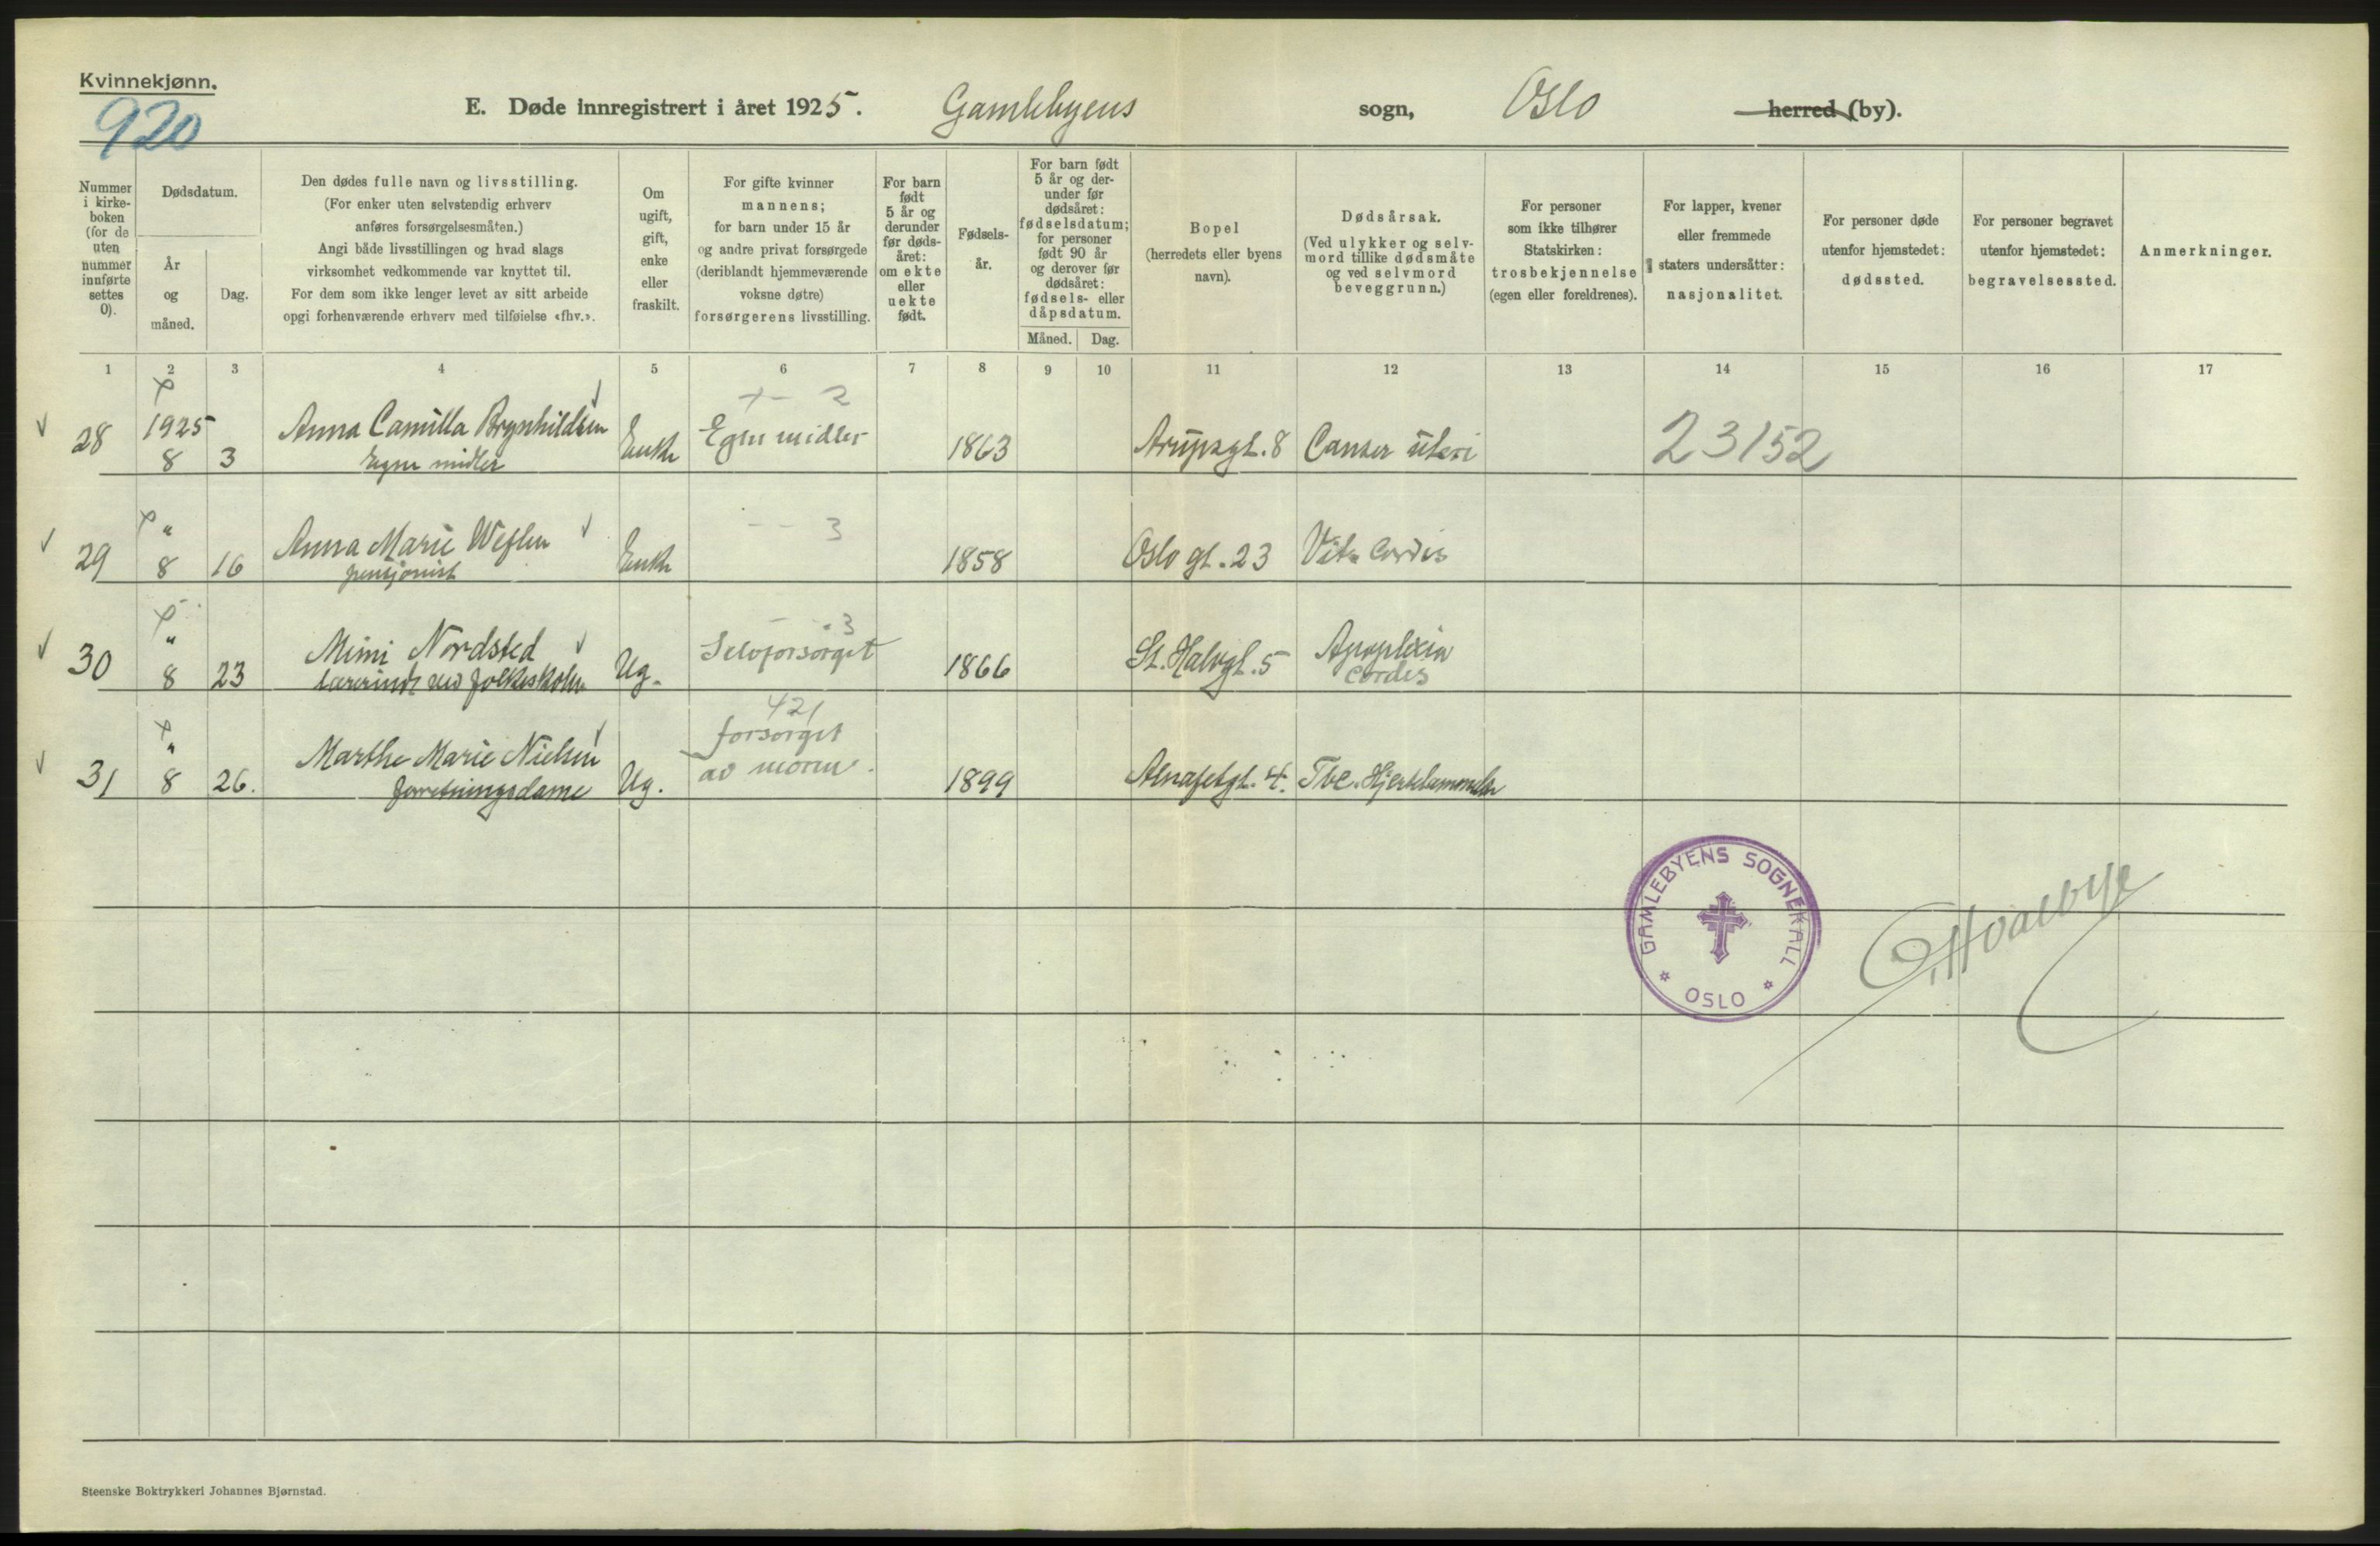 Kvinnekjønn.
920
E. Døde innregistrert i året 1925. Gamlebyens sogn, Oslo herred (by).
Nummer i kirkeboken (for de uten nummer innførte settes 0).
Dødsdatum.
År og måned.
Dag.
Den dødes fulle navn og livsstilling.
(For enker uten selvstendig erhverv
anføres forsørgelsesmåten.)
Angi både livsstillingen og hvad slags
virksomhet vedkommende var knyttet til.
For dem som ikke lenger levet av sitt arbeide
opgi forhenværende erhverv med tilføielse «fhv.».
Om ugift, gift, enke eller fraskilt.
For gifte kvinner
mannens;
for barn under 15 år
og andre privat forsørgede
(deriblandt hjemmeværende
voksne døtre)
forsørgerens livsstilling.
For barn født 5 år og derunder før dødsåret: om ekte eller uekte født.
Fødselsår.
For barn født
5 år og der-
under før
dødsåret:
fødselsdatum;
for personer
født 90 år
og derover før
dødsåret:
fødsels- eller
dåpsdatum.
Måned. Dag.
Bopel
(herredets eller byens
navn).
Dødsårsak.
(Ved ulykker og selv-
mord tillike dødsmåte
og ved selvmord
beveggrunn.)
For personer
som ikke tilhører
Statskirken:
trosbekjennelse
(egen eller foreldrenes).
For lapper, kvener
eller fremmede
staters undersåtter:
nasjonalitet.
For personer døde
utenfor hjemstedet:
dødssted.
For personer begravet
utenfor hjemstedet:
begravelsessted.
Anmerkninger.
1 2 3 4 5 6 7 8 9 10 11 12 13 14 15 16 17
28 1925 8 3 Anna Camilla Brynhildsen Enke 2 Egne midler 1863 Arupsgt. 8 Canser uteri 23152
Egne midler
29 " 8 16 Anna Marie Weflen Enke 3 1858 Oslo gt. 23 Vit. Cordis
pensjonist
30 " 8 23 Mimi Nordsted Ug. 3 Selvforsørget 1866 St. Halvgt. 5 Apoplexia
lærerinde ved folkeskolen cordis
421
31 " 8 26. Marthe Marie Nielsen Ug. forsørget av moren. 1899 Alnafetgt. 4. Tbc. Hjertelammelse
forretningsdame
GAMLEBYENS SOGNEKALL
OSLO
Hvalbye
Steenske Boktrykkeri Johannes Bjørnstad.